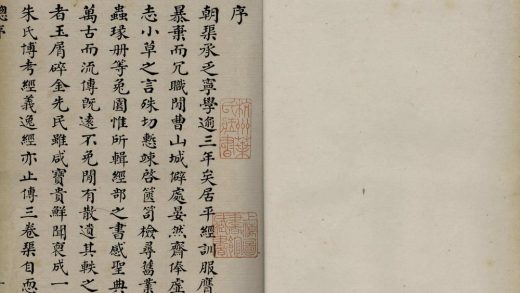 序
朝渠承乏寧學逾三年矣居平經訓服膺
暴棄而冗職閒曹山城僻處晏然齋俸虛
志小草之言殊切慙竦啓篋笥檢尋舊業
蟲瑑册等兔園惟所輯經部之書感聖典
萬古而流傳旣遠不免閒有散遺其軼之
者玉屑碎金先民雖咸寶貴鮮聞裒成一
朱氏博考經義逸經亦止傳三卷渠自
總序
杭州葉氏藏書
上海圖書館藏書